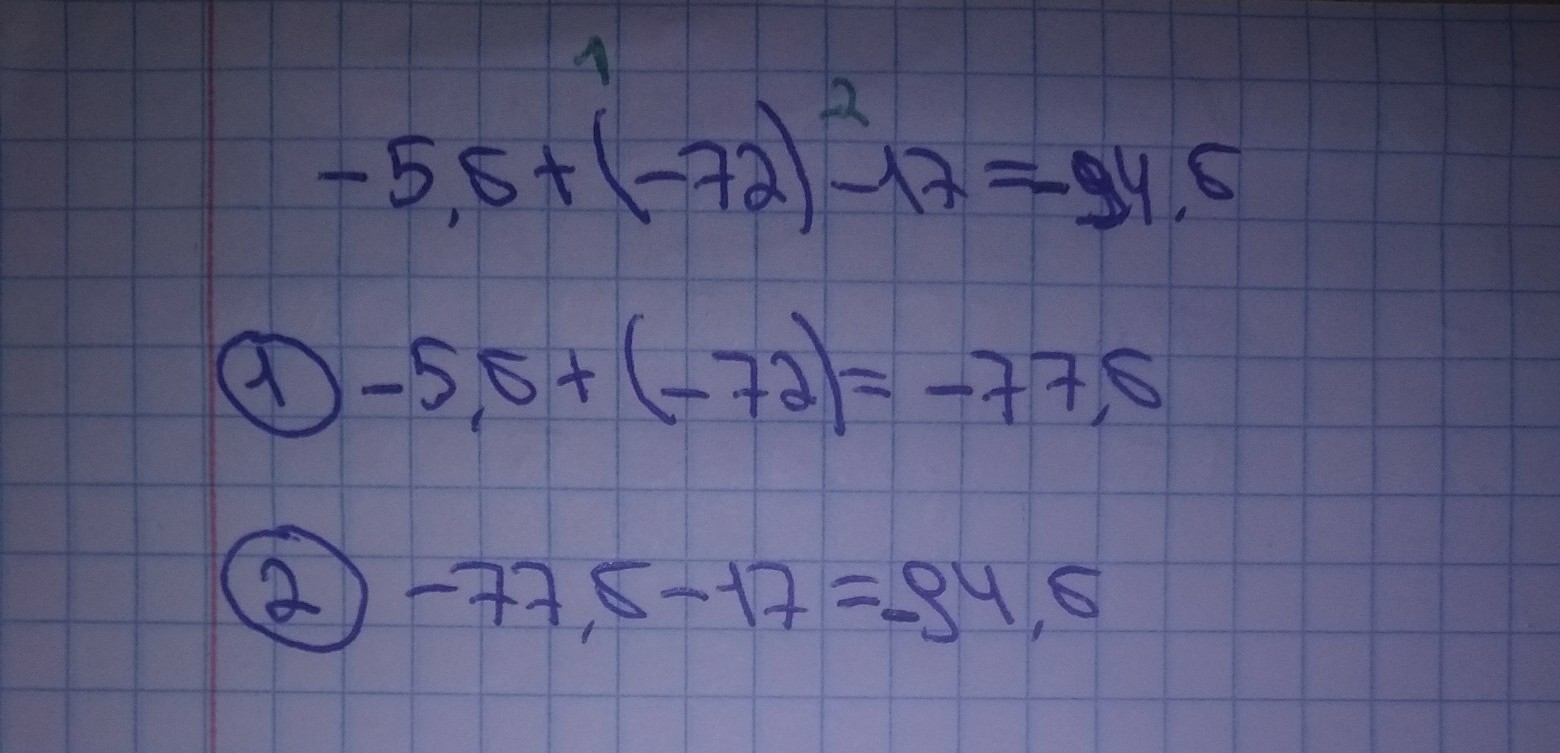 1 2
-5,6+(-72)-17=-94,6
1 -5,6+(-72)=-77,6
2 -77,6-17=-94,6